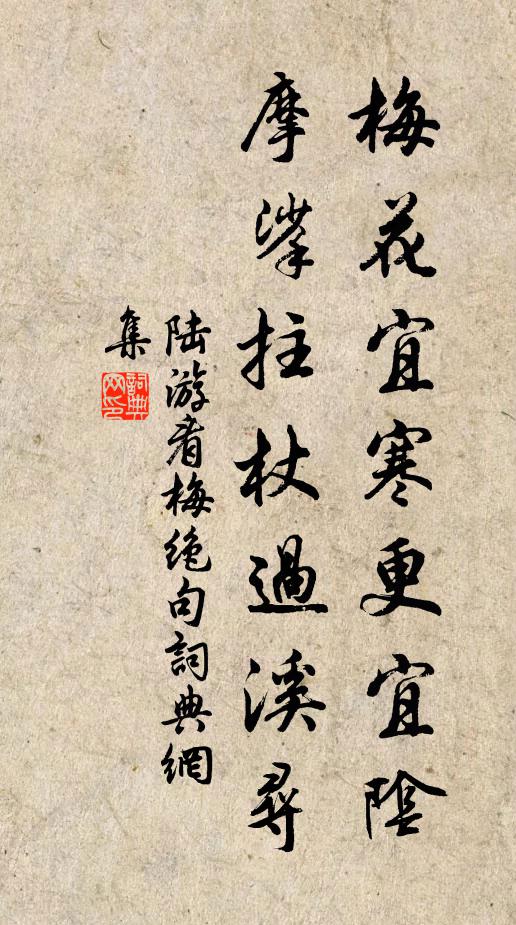 梅花宜寒更宜陰
摩挲拄杖過溪尋
陆游看梅绝句詞典網
集
詞典网印